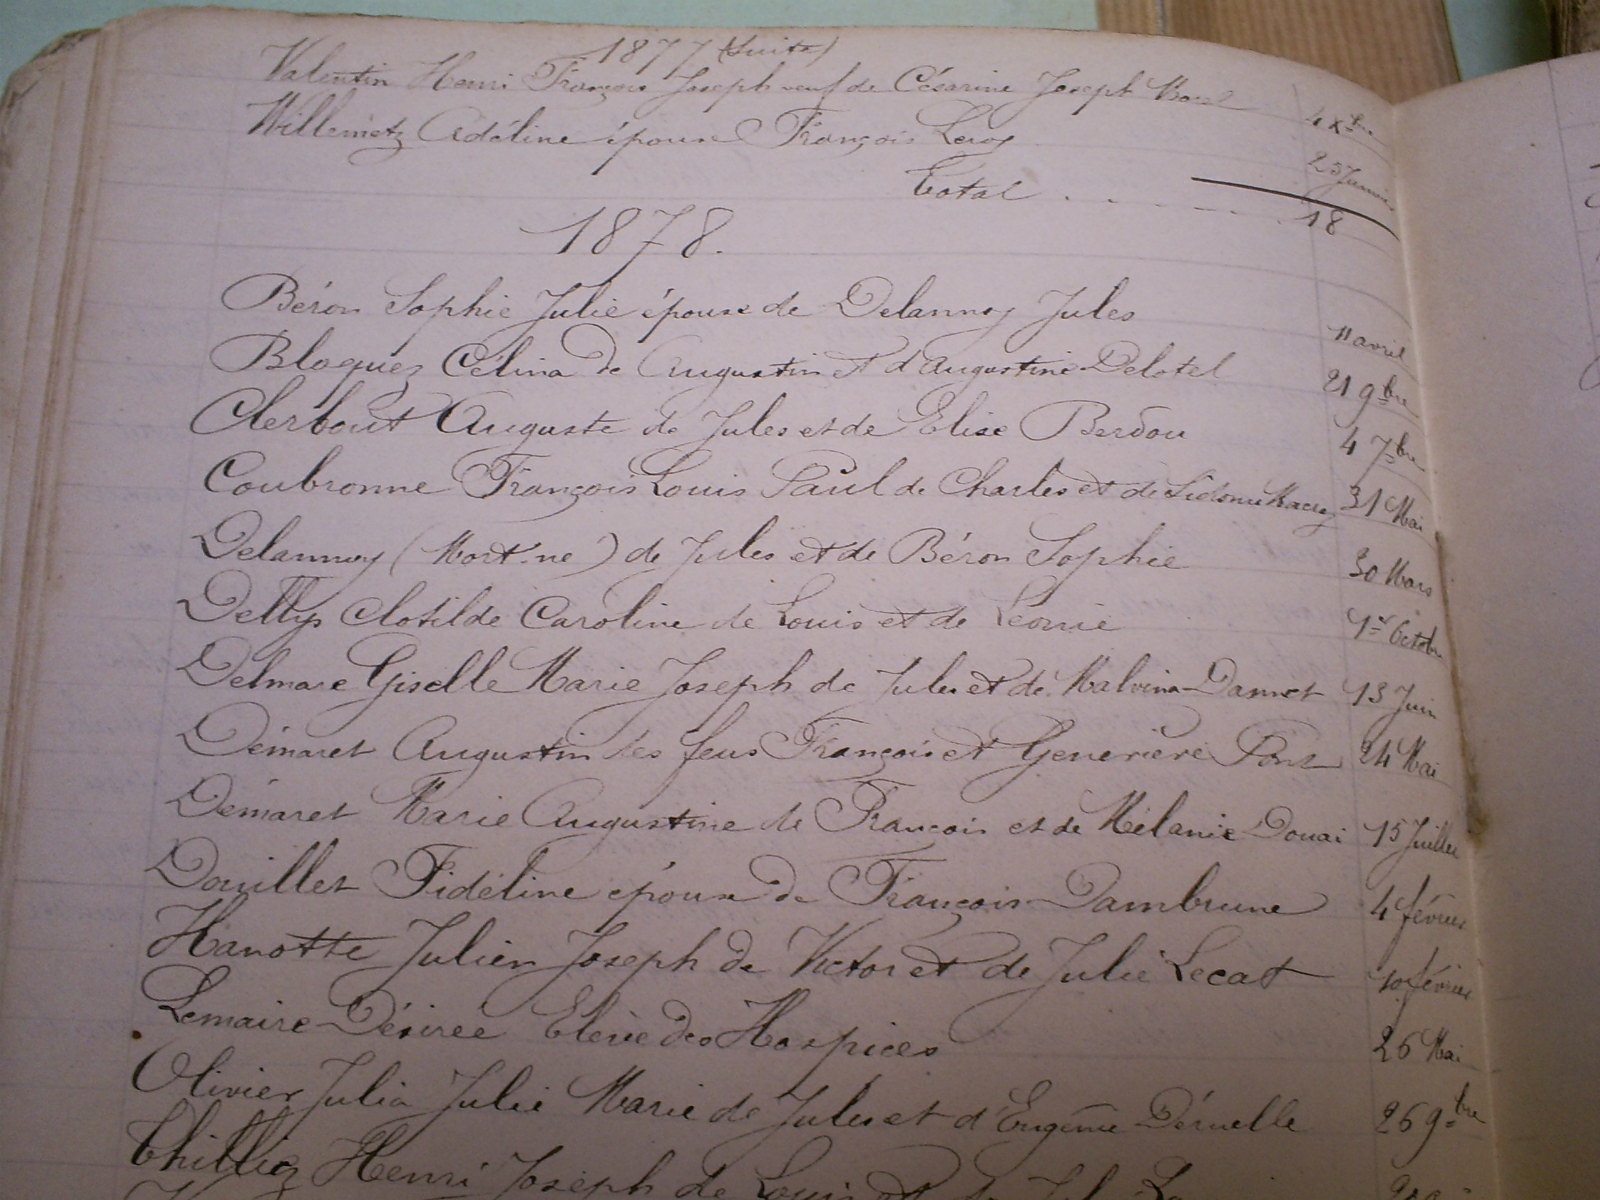 1877 (Suite)
Valentin Henri François Joseph veuf de Césarine Joseph 4 Xbre
Willemetz Adéline épouse François Leroy 25 Janvier
Total . . . . . . . 18
1878.
Béron Sophie Julie épouse de Delannoy Jules 11 avril
Bloquez Célina de Augustin et d'Augustine Delotel 21 9bre
Clerbout Auguste de Jules et de Elise Berdou 4 7bre
Coubronne François Louis Paul de Charles et de Sidonie Macrez 31 Mai
Delannoy (Mort-né) de Jules et de Béron Sophie 30 Mars
Dellys Clotilde Caroline de Louis et de Léonie 1er Octobre
Delmare Giselle Marie Joseph de Jules et de Malvina Dannet 13 Juin
Démaret Augustin des feus François et Geneviève Pont 24 Mai
Démaret Marie Augustine de François et de Mélanie Douai 15 Juillet
Douillet Fidéline épouse de François Dambrune 4 février
Hanotte Julien Joseph de Victor et de Julie Lecat 10 février
Lemaire Désirée Elève des Hospices 26 Mai
Olivier Julia Julie Marie de Jules et d'Eugénie Déruelle 26 9bre
Thilliez Henri Joseph de Louis et de